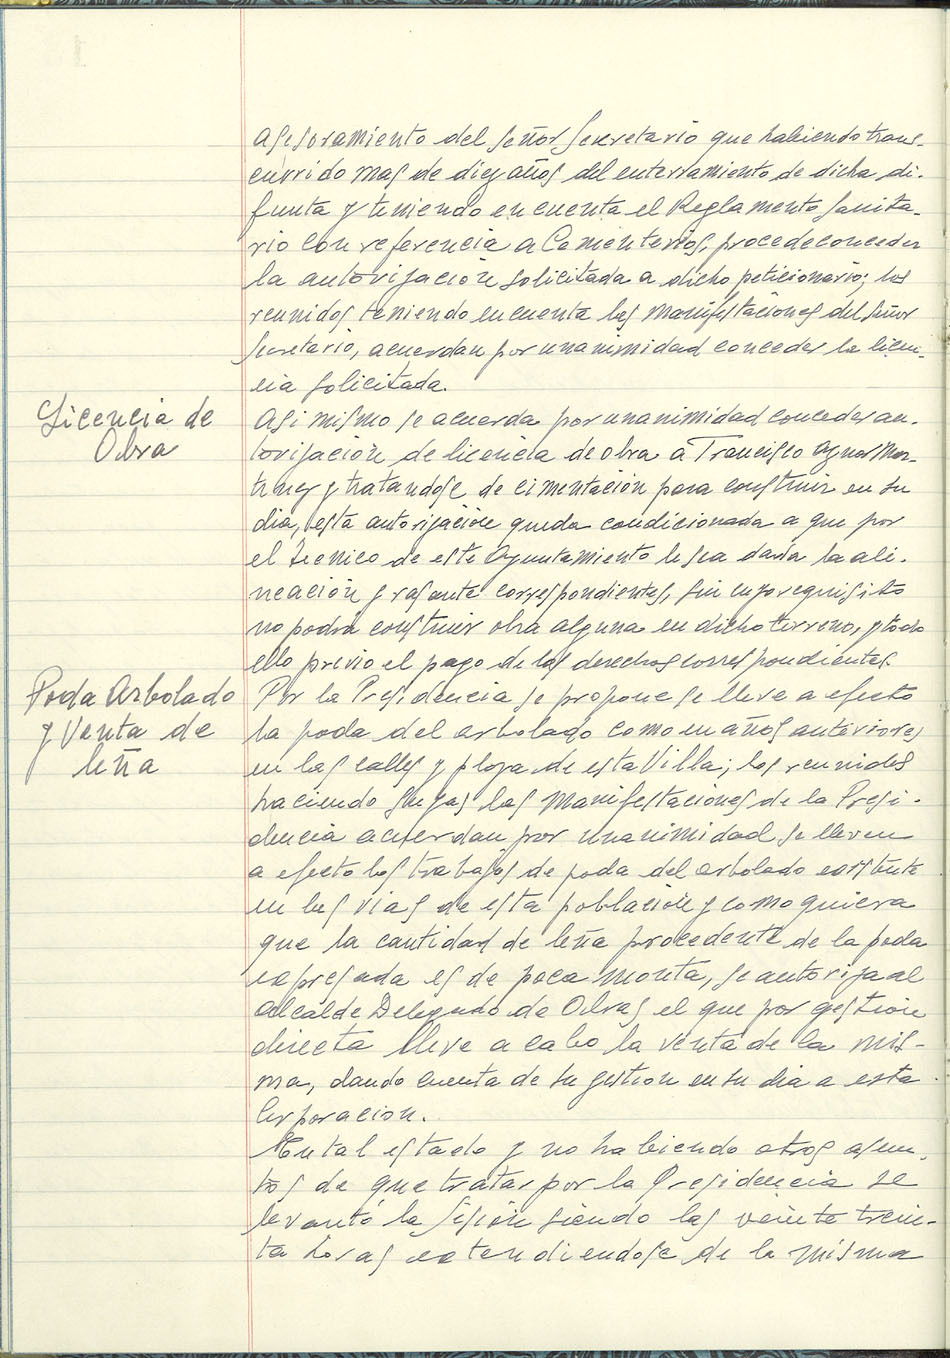 asesoramiento del Señor Secretario que habiendo trans-
currido mas de diez años del enterramiento de dicha di-
funta y teniendo en cuenta el Reglamento Sanita-
rio con referencia a Cementerios, procede conceder
la autorización solicitada a dicho peticionario; los
reunidos teniendo en cuenta las manifestaciones del Señor
Secretario, acuerdan por unanimidad conceder la licen-
cia solicitada.
Licencia de
Obra
Asi mismo se acuerda por unanimidad conceder au-
torización de licencia de obra a Francisco Aznar Mar-
tinez y tratandose de cimentación para construir en su
dia, esta autorización queda condicionada a que por
el Tecnico de este Ayuntamiento le sea dada la ali-
neación y rasante correspondientes, sin cuyo requisito
no podra construir obra alguna en dicho terreno, y todo
ello previo el pago de los derechos correspondientes.
Poda Arbolado
y Venta de
leña
Por la Presidencia se propone se lleve a efecto
la poda del arbolado como en años anteriores
en las calles y plaza de esta Villa; los reunidos
haciendo suyas las manifestaciones de la Presi-
dencia acuerdan por unanimidad se lleven
a efecto los trabajos de poda del arbolado existente
en las vias de esta población y como quiera
que la cantidad de leña procedente de la poda
expresada es de poca monta, se autoriza al
Alcalde Delegado de Obras el que por gestión
directa lleve a cabo la venta de la mis-
ma, dando cuenta de su gestion en su dia a esta
Corporacion.
En tal estado y no habiendo otros asun-
tos de que tratar por la Presidencia se
levantó la Sesión siendo las veinte trein-
ta horas extendiendose de la misma